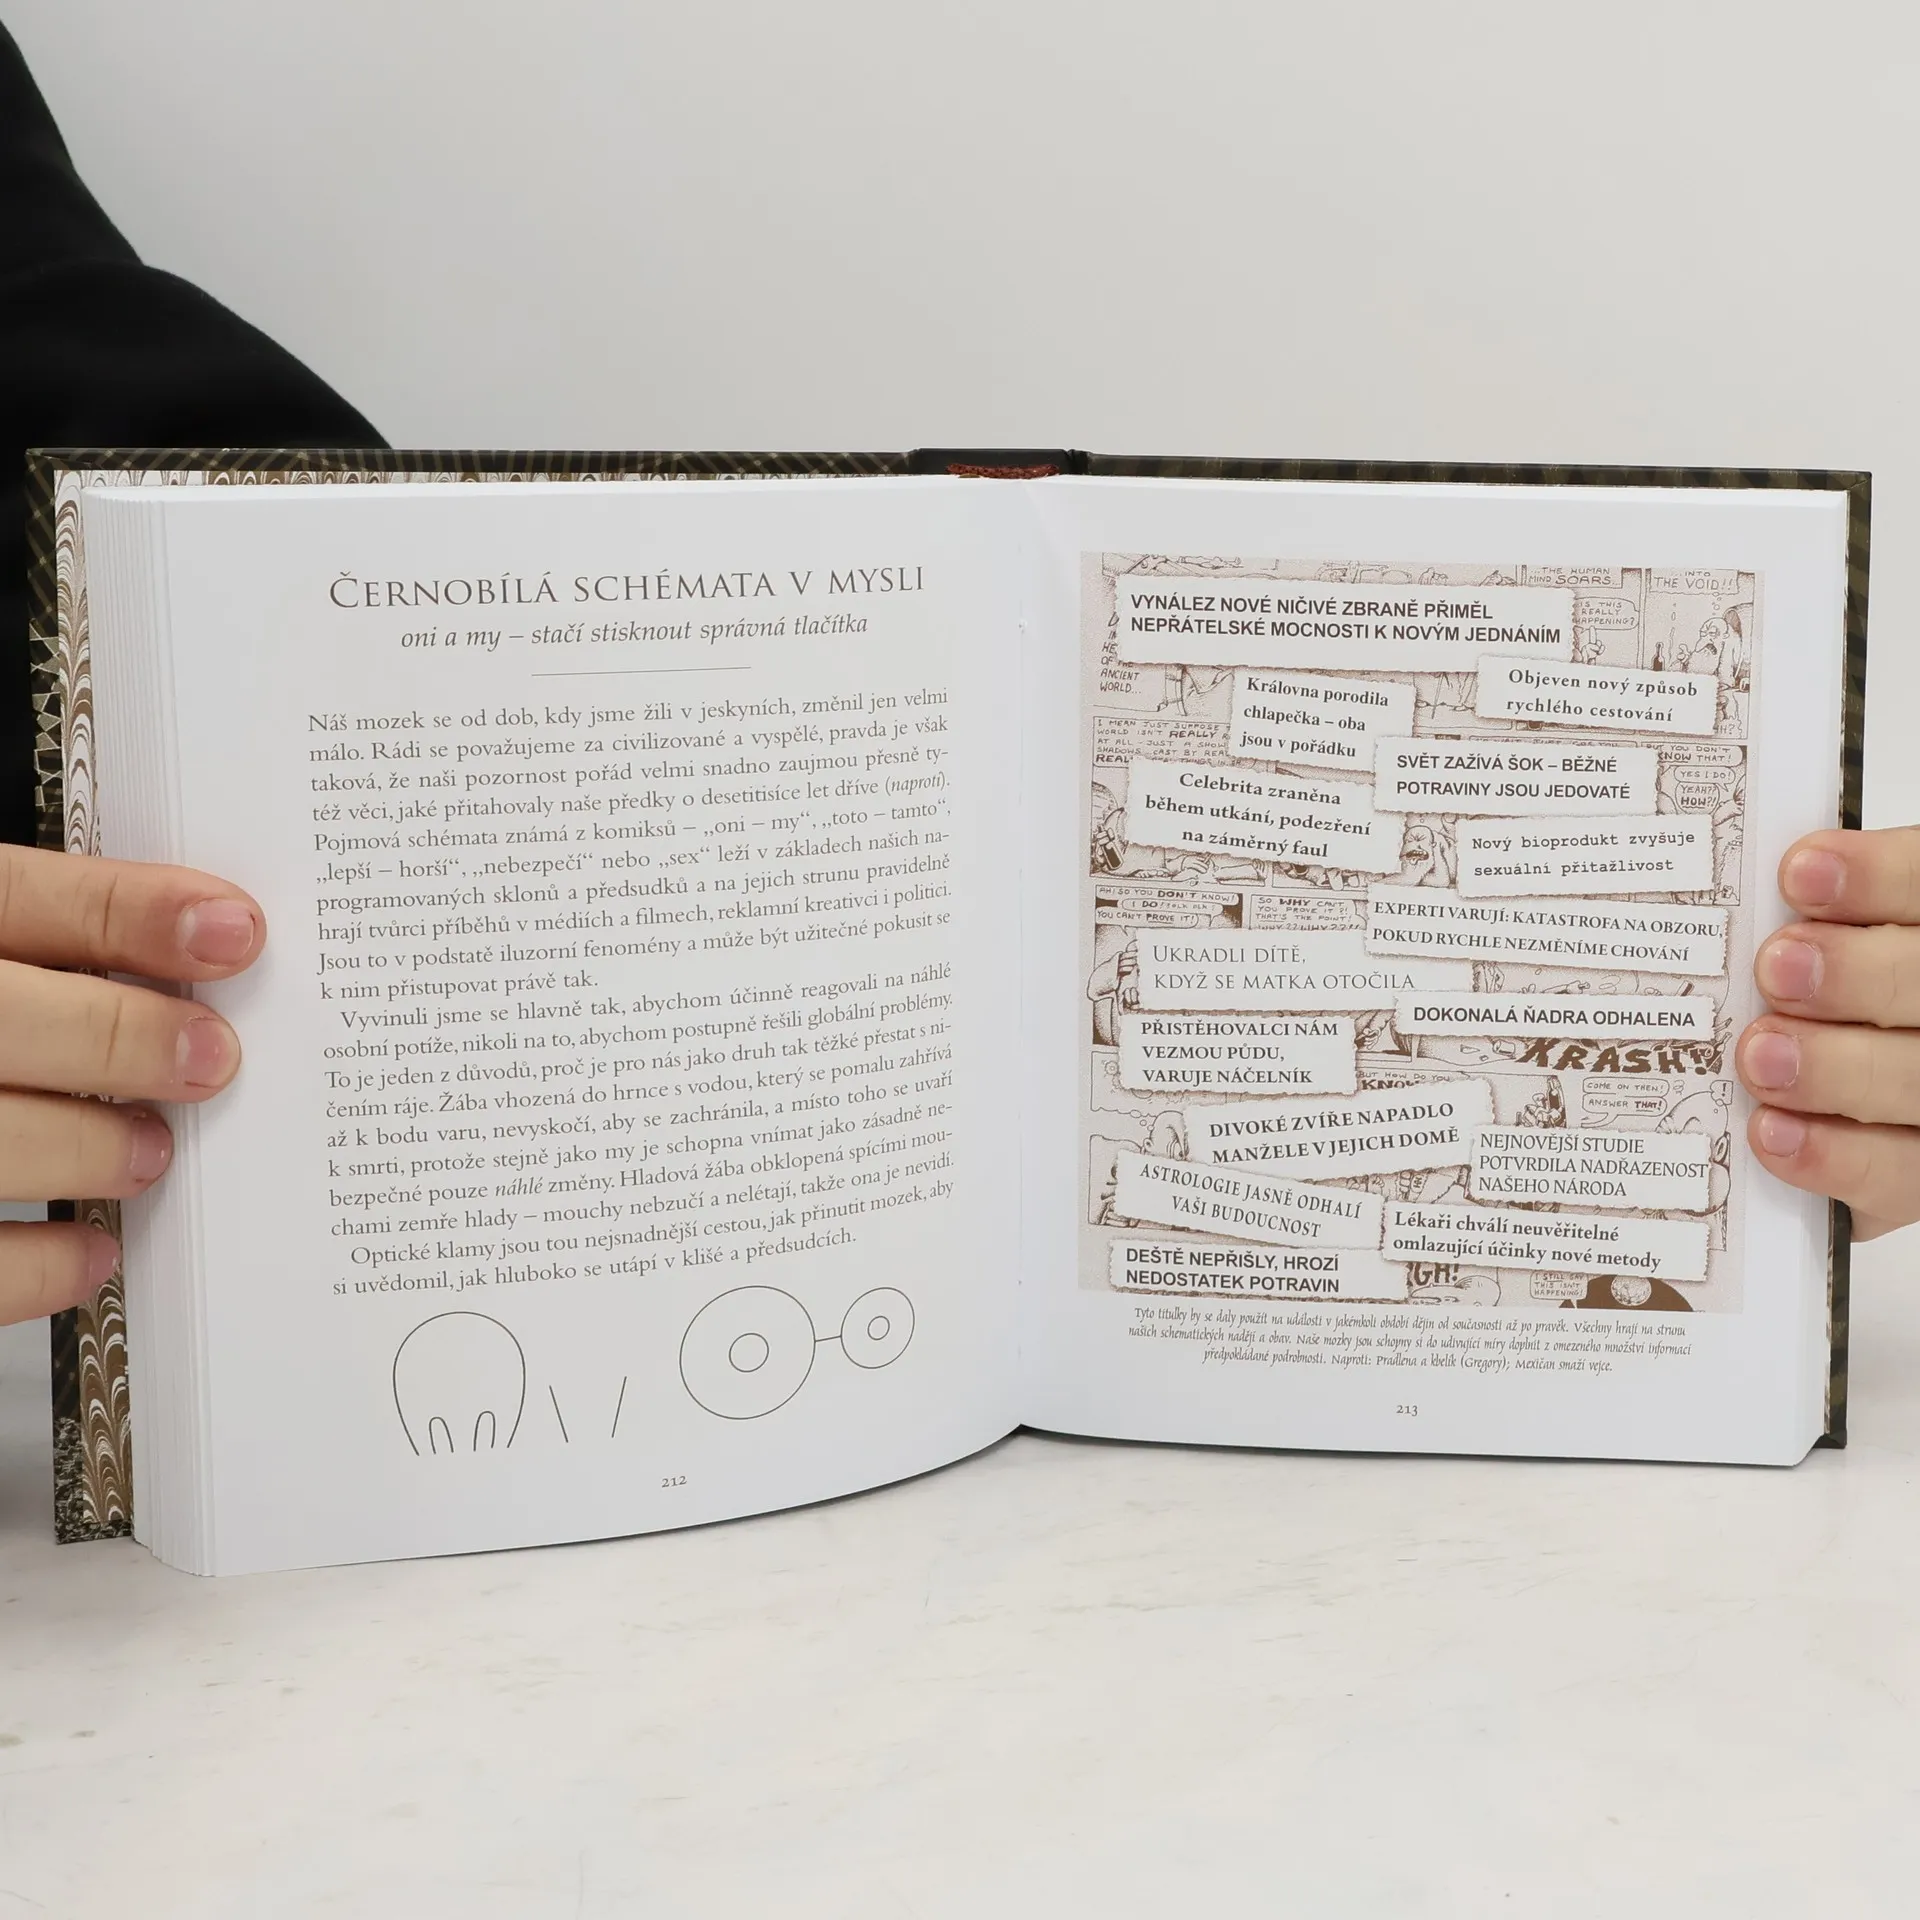 ČERNOBÍLÁ SCHÉMATA V MYSLI
oni a my – stačí stisknout správná tlačítka
Náš mozek se od dob, kdy jsme žili v jeskyních, změnil jen velmi
málo. Rádi se považujeme za civilizované a vyspělé, pravda je však
taková, že naši pozornost pořád velmi snadno zaujmou přesně ty-
též věci, jaké přitahovaly naše předky o desetitisíce let dříve (naproti).
Pojmová schémata známá z komiksů – „oni – my“, „toto – tamto“,
„lepší – horší“, „nebezpečí“ nebo „sex“ leží v základech našich na-
programovaných sklonů a předsudků a na jejich strunu pravidelně
hrají tvůrci příběhů v médiích a filmech, reklamní kreativci i politici.
Jsou to v podstatě iluzorní fenomény a může být užitečné pokusit se
k nim přistupovat právě tak.
Vyvinuli jsme se hlavně tak, abychom účinně reagovali na náhlé
osobní potíže, nikoli na to, abychom postupně řešili globální problémy.
To je jeden z důvodů, proč je pro nás jako druh tak těžké přestat s ni-
čením ráje. Žába vhozená do hrnce s vodou, který se pomalu zahřívá
až k bodu varu, nevyskočí, aby se zachránila, a místo toho se uvaří
k smrti, protože stejně jako my je schopna vnímat jako zásadně ne-
bezpečné pouze náhlé změny. Hladová žába obklopená spícími mou-
chami zemře hlady – mouchy nebzučí a nelétají, takže ona je nevidí.
Optické klamy jsou tou nejsnadnější cestou, jak přinutit mozek, aby
si uvědomil, jak hluboko se utápí v klišé a předsudcích.
212
THE HUMAN
MIND SOARS...
...INTO
THE VOID!!
VYNÁLEZ NOVÉ NIČIVÉ ZBRANĚ PŘIMĚL
NEPŘÁTELSKÉ MOCNOSTI K NOVÝM JEDNÁNÍM
IS THIS
REALLY
HAPPENING?
OF THE
ANCIENT
WORLD...
Objeven nový způsob
rychlého cestování
Královna porodila
chlapečka – oba
jsou v pořádku
I MEAN JUST SUPPOSE
WORLD ISN'T REALLY
AT ALL - JUST A SHOW
SHADOWS CAST BY REAL
SVĚT ZAŽÍVÁ ŠOK – BĚŽNÉ
POTRAVINY JSOU JEDOVATÉ
BUT YOU DON'T
KNOW THAT!
YES I DO!
YEAH??
HOW?!
Celebrita zraněna
během utkání, podezření
na záměrný faul
Nový bioprodukt zvyšuje
sexuální přitažlivost
AH! SO YOU DON'T KNOW!
I DO!
YOU CAN'T PROVE IT!
SO WHY CAN'T
YOU PROVE IT?!
THAT'S THE POINT!
EXPERTI VARUJÍ: KATASTROFA NA OBZORU,
POKUD RYCHLE NEZMĚNÍME CHOVÁNÍ
UKRADLI DÍTĚ,
KDYŽ SE MATKA OTOČILA
DOKONALÁ ŇADRA ODHALENA
PŘISTĚHOVALCI NÁM
VEZMOU PŮDU,
VARUJE NÁČELNÍK
KRASH!!
BUT HOW DO YOU
KNOW
COME ON THEN!
ANSWER THAT!
DIVOKÉ ZVÍŘE NAPADLO
MANŽELE V JEJICH DOMĚ
NEJNOVĚJŠÍ STUDIE
POTVRDILA NADŘAZENOST
NAŠEHO NÁRODA
ASTROLOGIE JASNĚ ODHALÍ
VAŠI BUDOUCNOST
Lékaři chválí neuvěřitelné
omlazující účinky nové metody
DEŠTĚ NEPŘIŠLY, HROZÍ
NEDOSTATEK POTRAVIN
I STILL SAY
THIS ISN'T
HAPPENING!
Tyto titulky by se daly použít na události v jakémkoli období dějin od současnosti až po pravěk. Všechny hrají na strunu
našich schematických nadějí a obav. Naše mozky jsou schopny si do udivující míry doplnit z omezeného množství informací
předpokládané podrobnosti. Naproti: Pradlena a kbelík (Gregory); Mexičan smaží vejce.
213